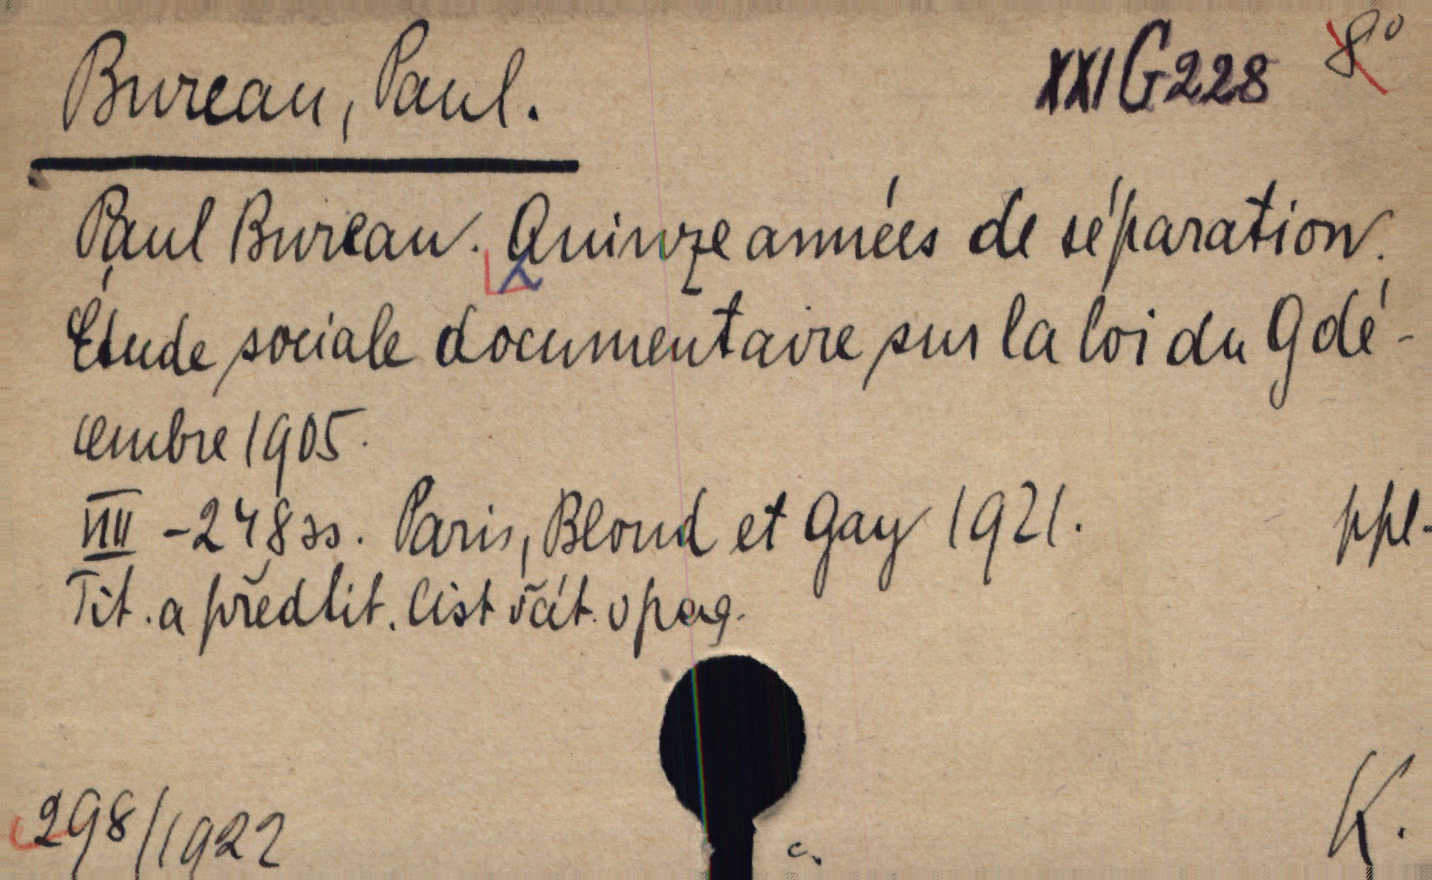 Bureau, Paul.
XXI G 228
8°
Paul Bureau. Quinze années de séparation.
Étude sociale documentaire sur la loi du 9 dé-
cembre 1905.
VIII - 248 ss. Paris, Bloud et Gay 1921. ppl.
Tit. a předtit. list řát. v pag.
298/1922
c.
K.